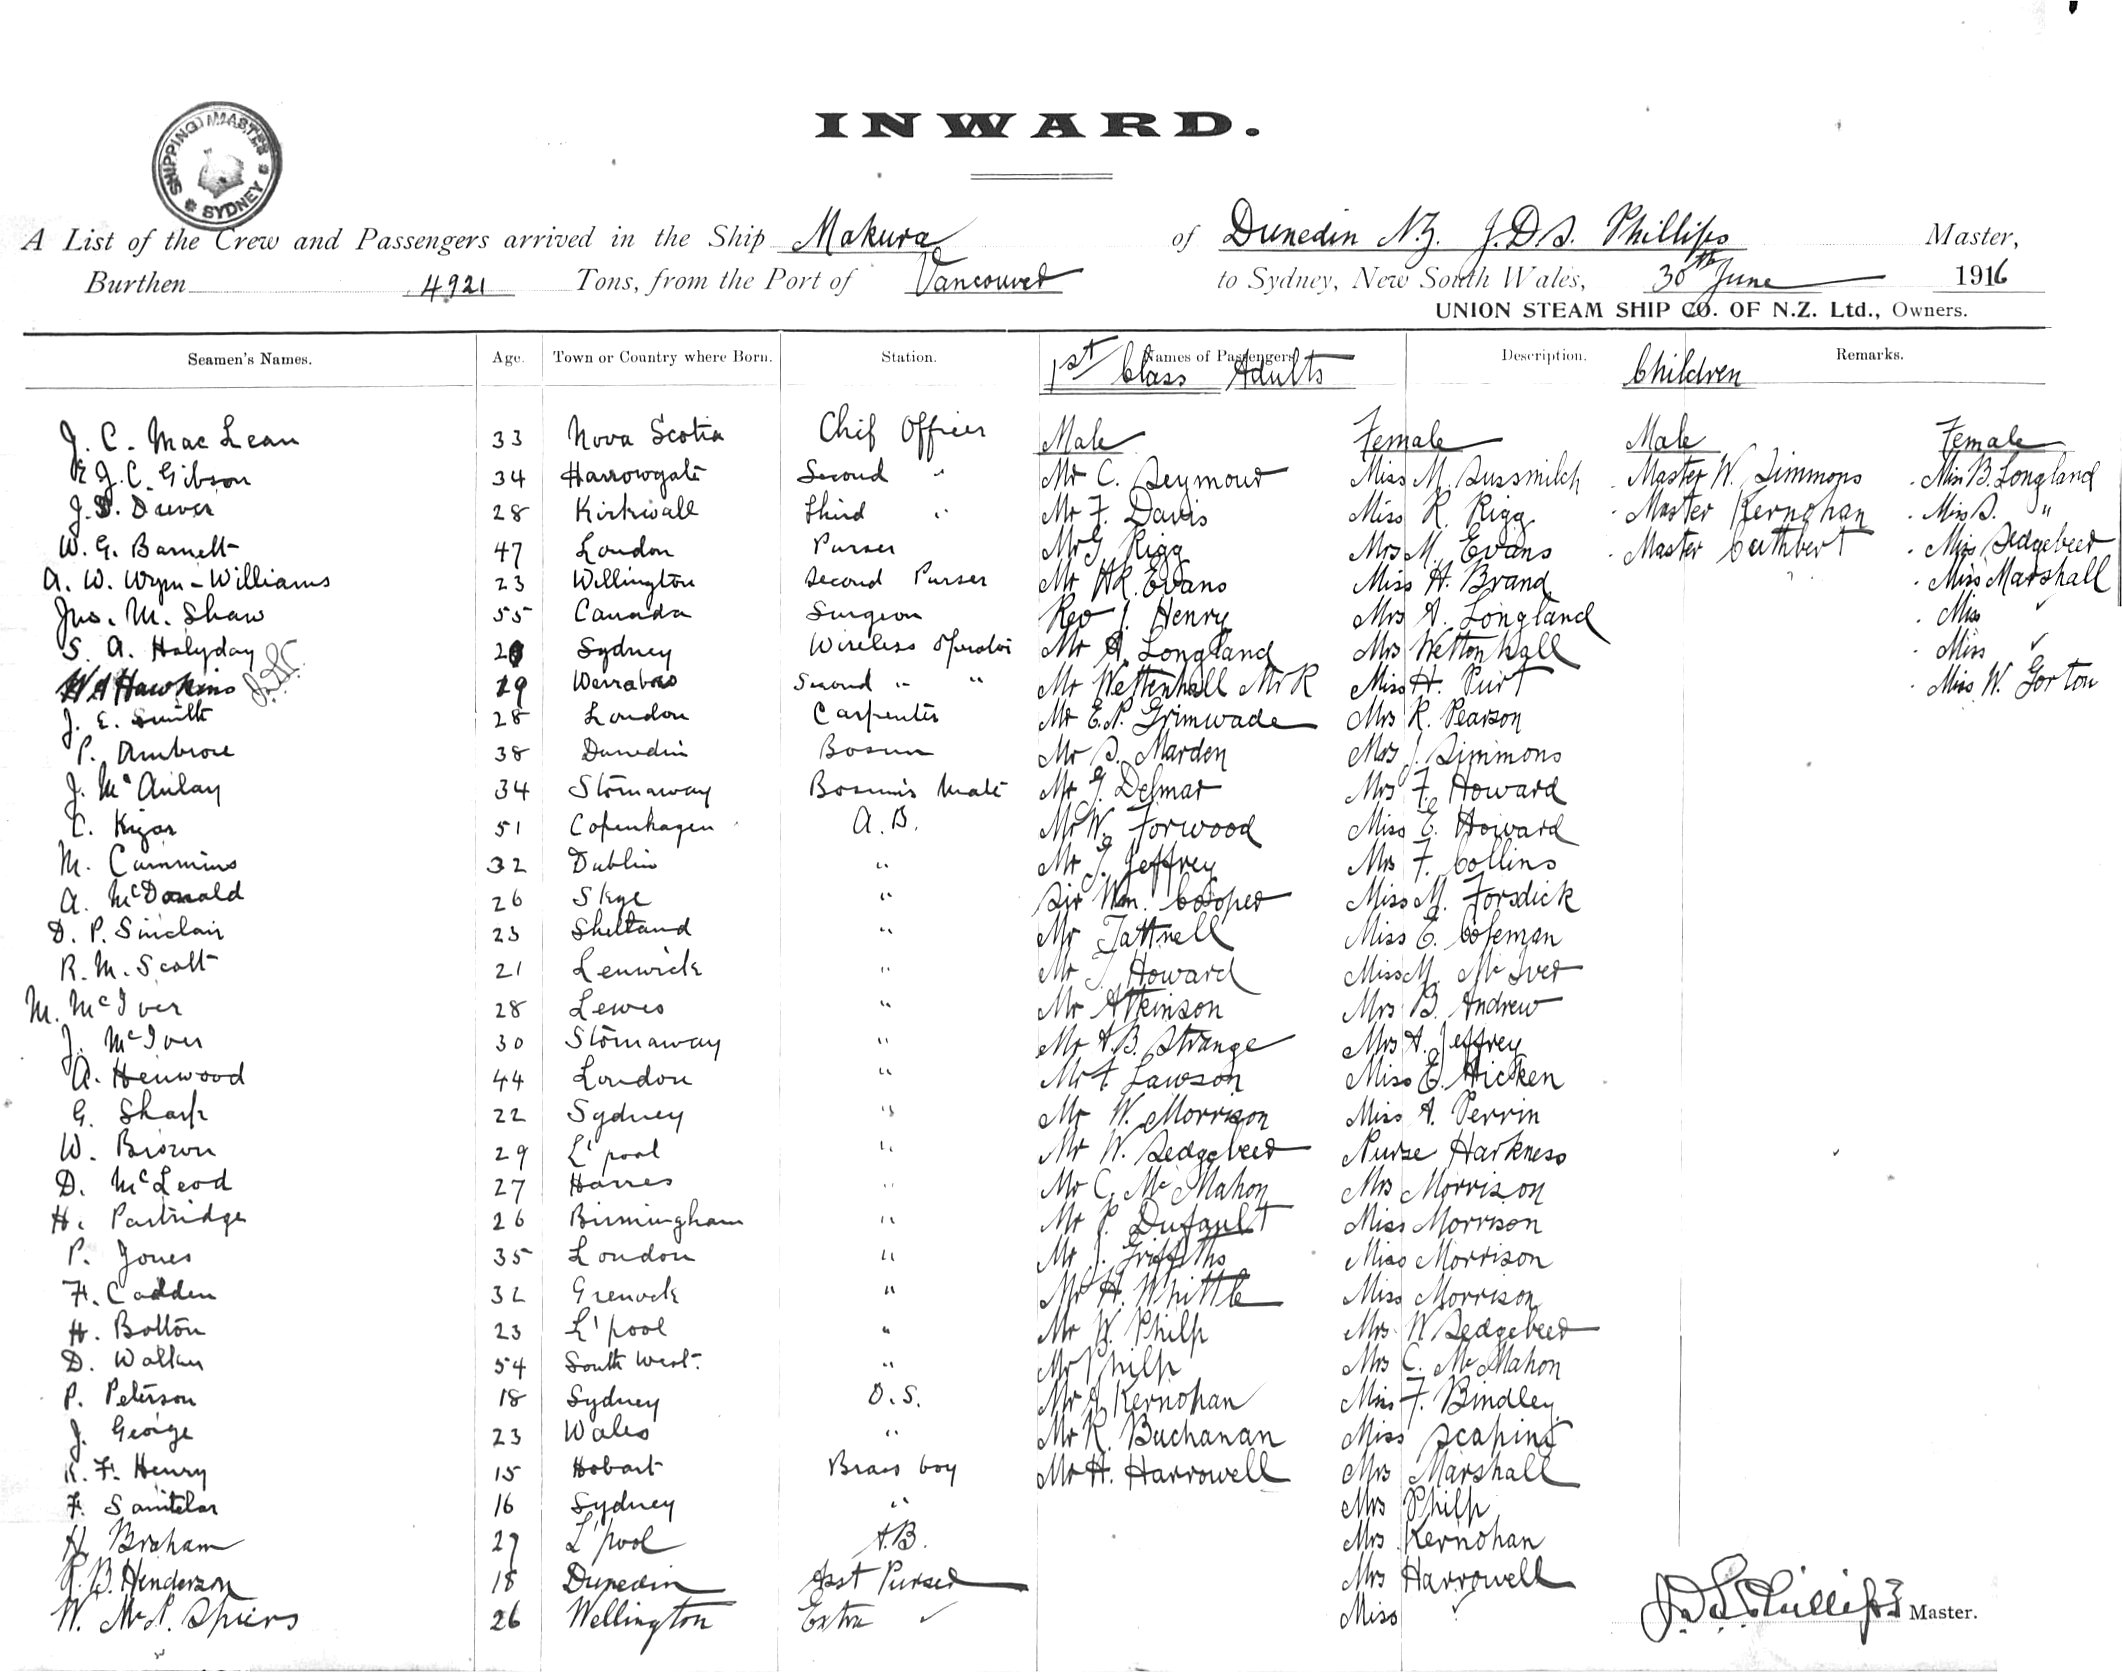 SHIPPING MASTER SYDNEY
INWARD.
A List of the Crew and Passengers arrived in the Ship Makura of Dunedin N.Z. J.D.S. Phillips Master,
Burthen 4921 Tons, from the Port of Vancouver to Sydney, New South Wales, 30th June 1916
UNION STEAM SHIP CO. OF N.Z. Ltd., Owners.
Seamen's Names. Age. Town or Country where Born. Station. Names of Passengers Description. Remarks.
1st Class Adults Children
J. C. MacLean 33 Nova Scotia Chif Officer Male Female Male Female
E J. C. Gibson 34 Harrowgate Second " Mr C. Seymour Miss M. Sussmilch Master W. Simmons Miss B. Longland
J. S. Drever 28 Kirkwall Third " Mr F. Davis Miss R. Rigg Master Kernohan Miss S. "
W. G. Barnett 47 London Purser Mr G Rigg Mrs M. Evans Master Cuthbert Miss Sedgebeer
A. W. Wynn-Williams 23 Wellington Second Purser Mr H.R. Evans Miss H. Brand Miss Marshall
Jno. M. Shaw 55 Canada Surgeon Rev J. Henry Mrs A. Longland Miss "
S. A. Halyday Sydney Wireless Operator Mr A. Longland Mrs Wettenhall Miss "
W A Hawkins 19 Second " " Mr Wettenhall Mr R Miss H. Purt Miss W. Gorton
J. E. Smith 28 London Carpenter Mr E. N. Grimwade Mrs R. Pearson
P. Ambrose 38 Dunedin Bosun Mr S. Marden Mrs J. Simmons
J. McAulay 34 Stornaway Bosun's Mate Mr G. Delmar Mrs F. Howard
C. Kizar 51 Copenhagen A.B. Mr W. Forwood Miss E. Howard
M. Cummins 32 Dublin " Mr G. Jeffrey Mrs F. Collins
A. McDonald 26 Skye " Sir Wm. Cooper Miss M. Forsdick
D. P. Sinclair 23 Shetland " Mr Tattnell Miss E. Coleman
R. M. Scott 21 Lerwick " Mr J. Howard Miss M. McIver
M. McIver 28 Lewis " Mr Atkinson Mrs B. Andrew
J. McIver 30 Stornaway " Mr A.B. Strange Mrs A. Jeffrey
A. Henwood 44 London " Mr F. Lawson Miss E. Hicken
G. Sharp 22 Sydney " Mr W. Morrison Miss A. Perrin
W. Brown 29 L'pool " Mr W. Sedgebeer Nurse Harkness
D. McLeod 27 Harres " Mr C. McMahon Mrs Morrison
H. Partridge 26 Birmingham " Mr P. Dufault Miss Morrison
P. Jones 35 London " Mr J. Griffiths Miss Morrison
F. Cadden 32 Grenock " Mr H. Whittle Miss Morrison
H. Bolton 23 L'pool " Mr W. Philp Mrs W Sedgebeer
D. Walker 54 South West. " Mr Philp Mrs C. McMahon
P. Peterson 18 Sydney O.S. Mr A Kernohan Miss F. Bindley
J. George 23 Wales " Mr R. Buchanan Miss Scaping
K. F. Henry 15 Hobart Brass boy Mr H. Harrowell Mrs Marshall
F. 16 Sydney " Mrs Philp
H. Braham 27 L'pool A.B. Mrs Kernohan
R. B. Henderson 18 Dunedin Asst Purser Mrs Harrowell
W. McP. Spiers 26 Wellington Extra " Miss "
J D S Phillips Master.